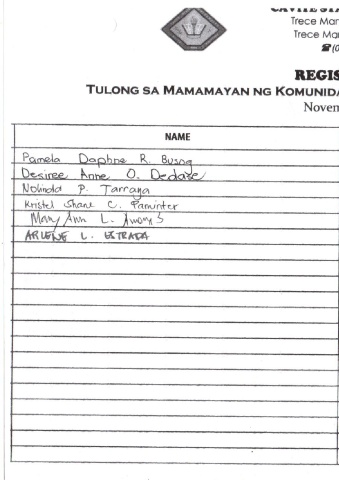 CAVITE STA
Trece Mar
Trece Mar
☎(0
REGIS
TULONG SA MAMAMAYAN NG KOMUNIDA
Novem
NAME
Pamela Daphne R. Busog
Desiree Anne O. Dedase
Nolinda P. Tarraya
Kristel Shane C. Paminter
Mary Ann L.
ARLENE L. ESTRADA